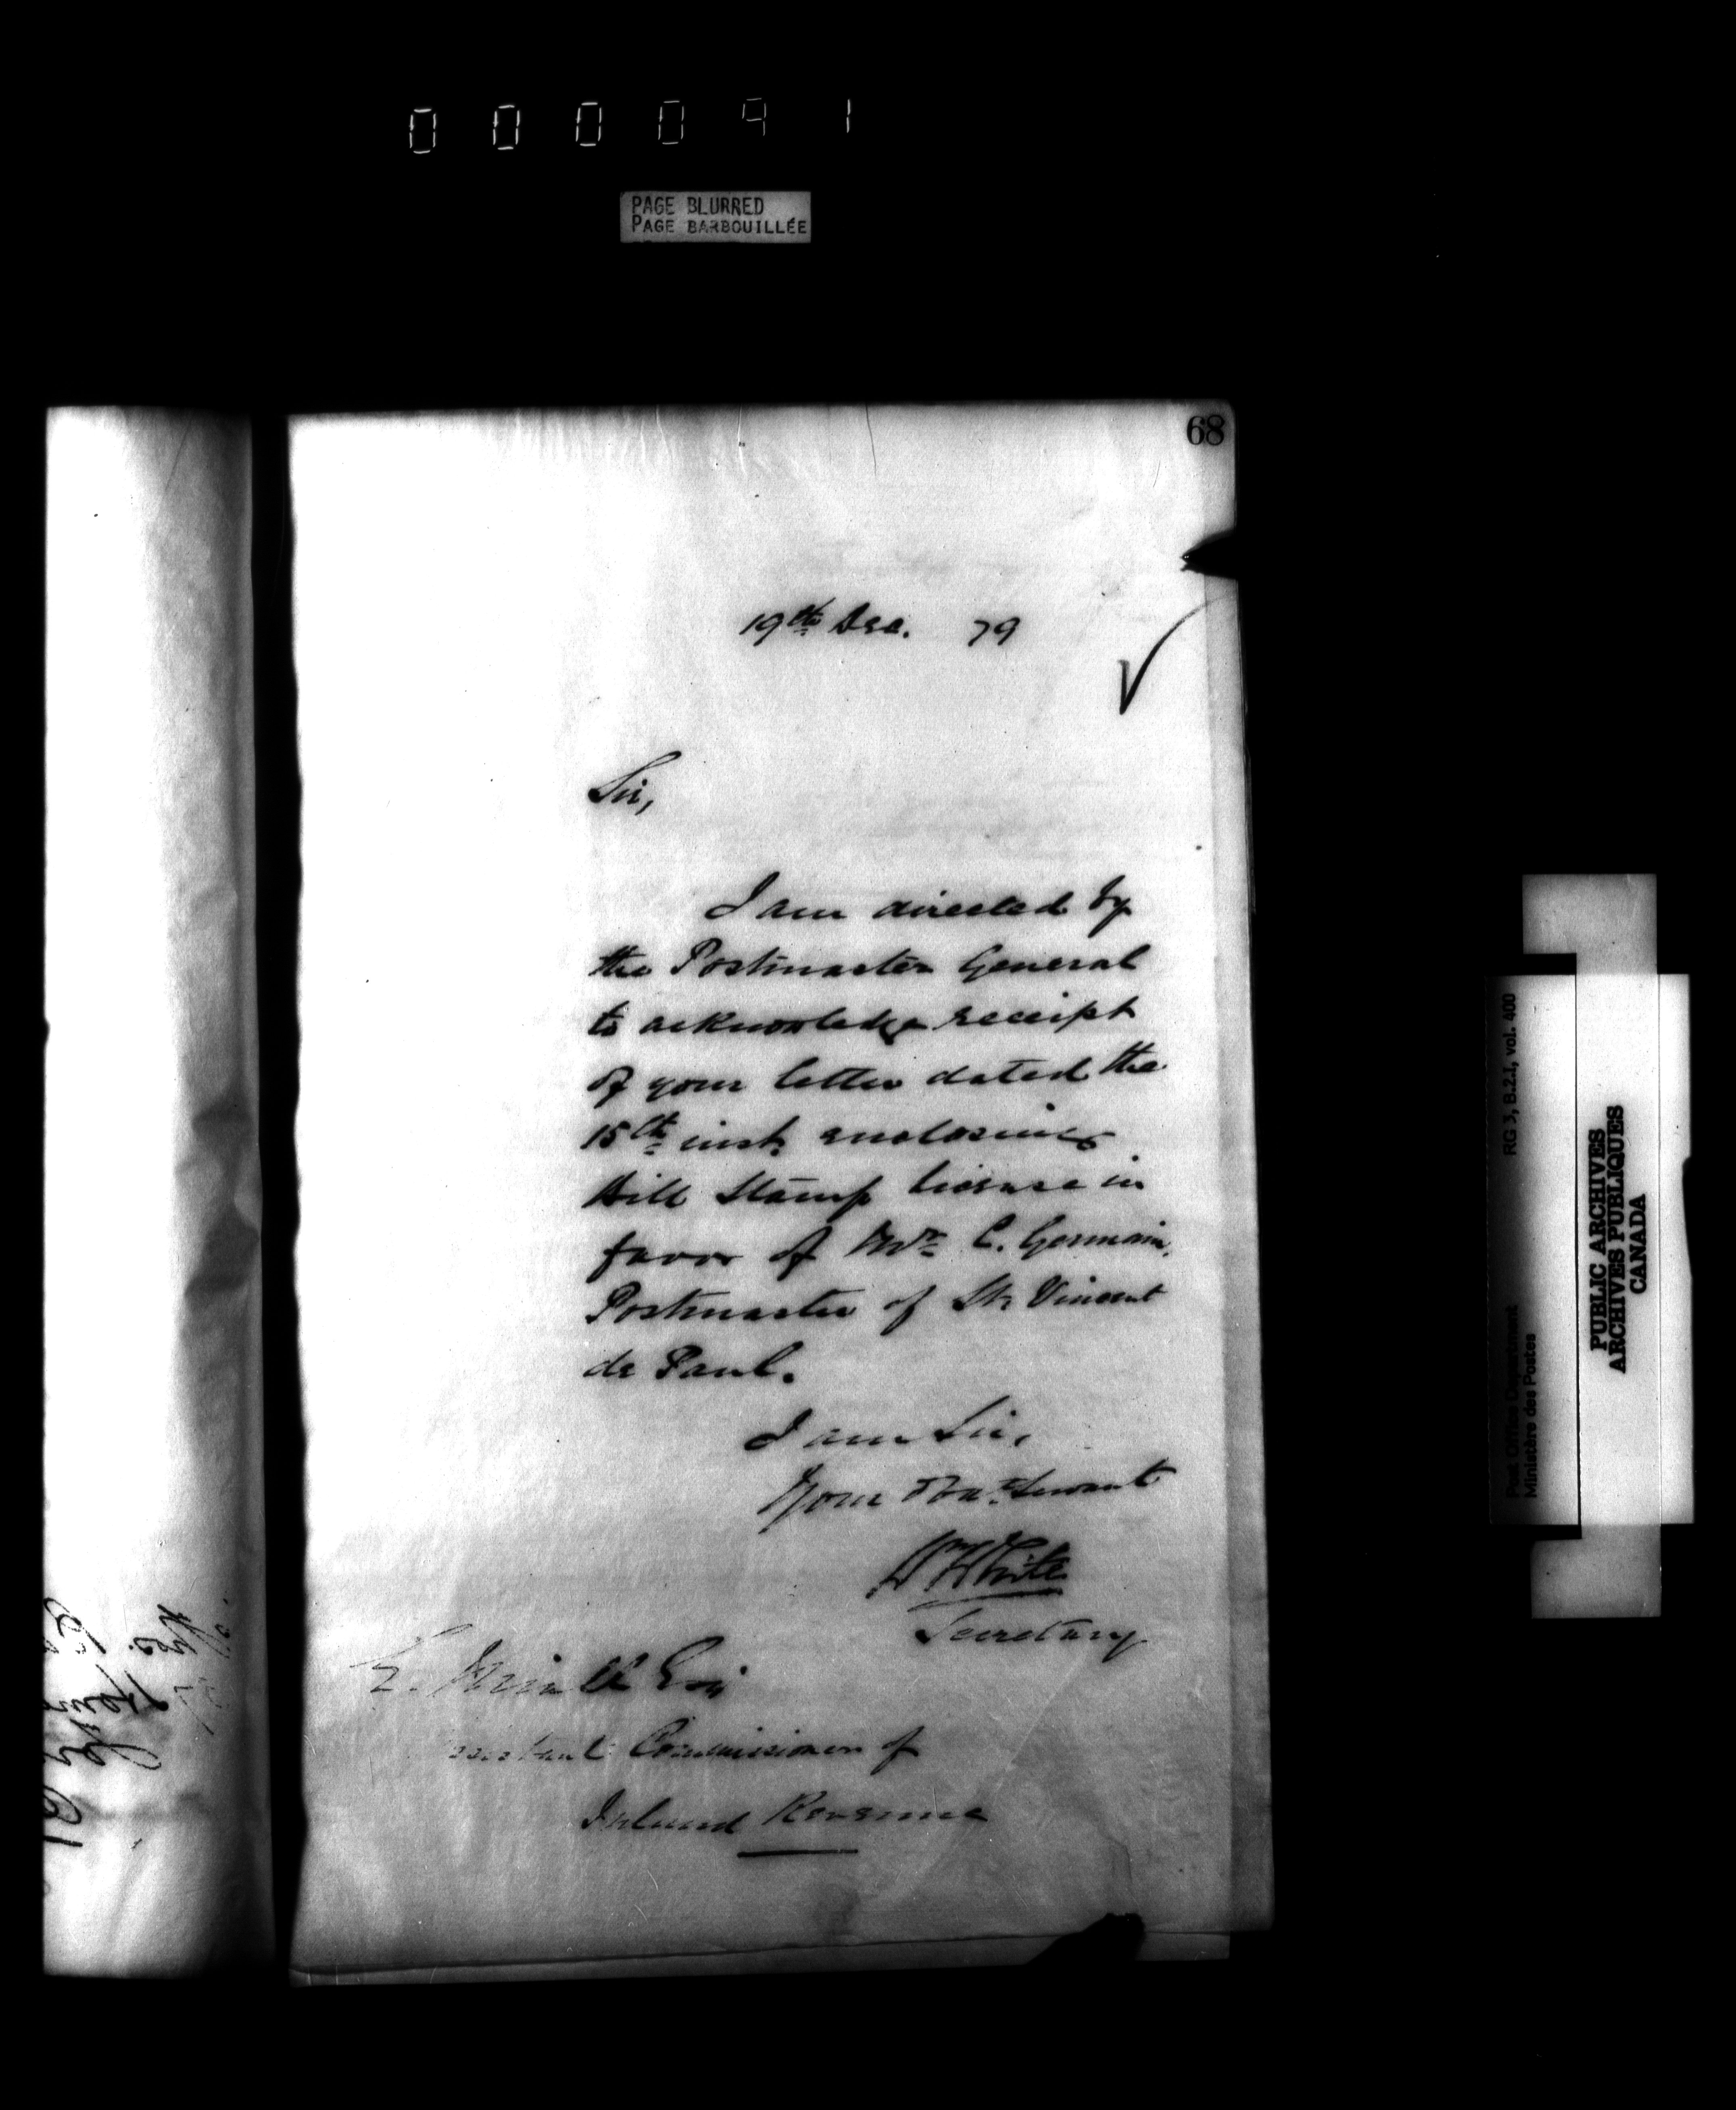 000091
PAGE BLURRED
PAGE BARBOUILLÉE
68
19th Dec. 79
Sir,
I am directed by
the Postmaster General
to acknowledge receipt
of your letter dated the
15th inst. enclosing
Bill Stamp license in
favor of Mr. C. Germain,
Postmaster of St. Vincent
de Paul.
I am Sir,
Your Obt. Servant
Wm White
Secretary
Esq
Commissioner of
Inland Revenue
RG 3, B.2.I, vol. 400
Post Office Department
Ministère des Postes
PUBLIC ARCHIVES
ARCHIVES PUBLIQUES
CANADA